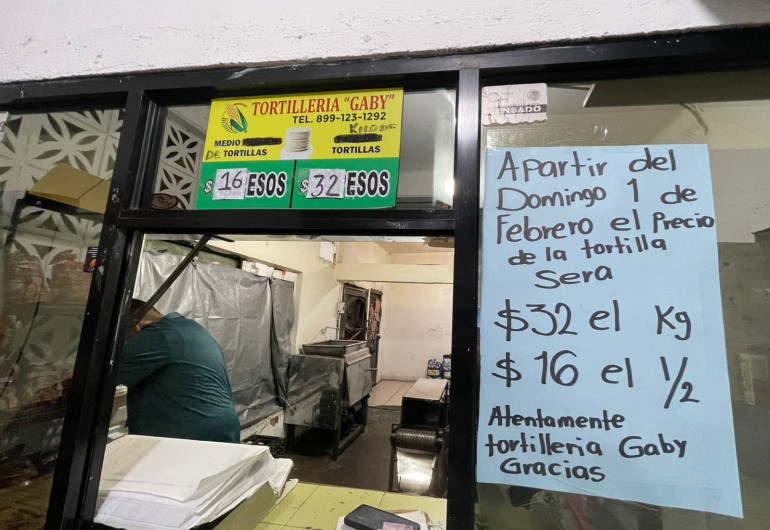 TORTILLERIA "GABY"
TEL. 899-123-1292
KILO DE
MEDIO
DE TORTILLAS
TORTILLAS
$16 ESOS
$32 ESOS
CENSADO
Apartir del
Domingo 1 de
Febrero el Precio
de la tortilla
Sera
$32 el Kg
$16 el 1/2
Atentamente
tortilleria Gaby
Gracias